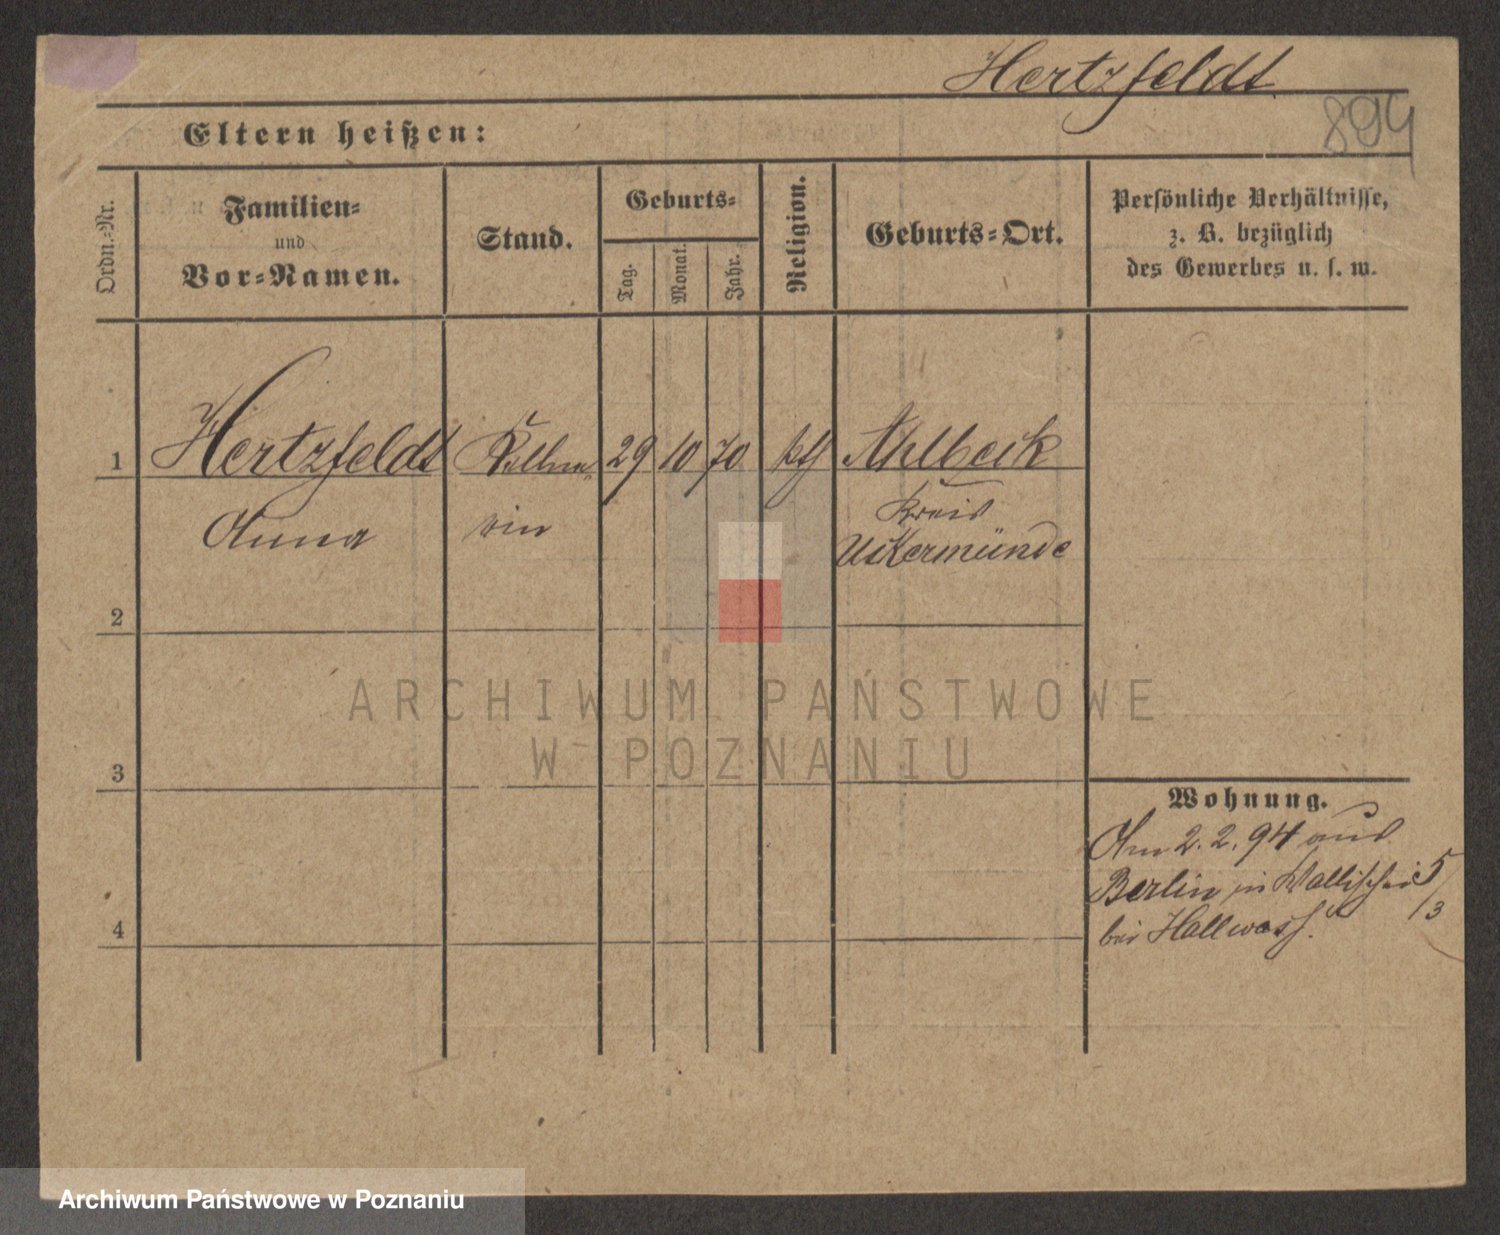 Hertzfeldt
894
Eltern heißen:
Ordn.-Nr.
Familien-
und
Vor-Namen.
Stand.
Geburts-
Tag.
Monat.
Jahr.
Religion.
Geburts-Ort.
Persönliche Verhältnisse,
z. B. bezüglich
des Gewerbes u. s. w.
1 Hertzfeldt Kellne- 29 10 70 kth Ahlbeck
Anna rin Kreis
Uckermünde
2
3
4
Wohnung.
Am 2.2.94 aus
Berlin in Wallischei 5/3
bei Hallwass.
ARCHIWUM PAŃSTWOWE
W POZNANIU
Archiwum Państwowe w Poznaniu